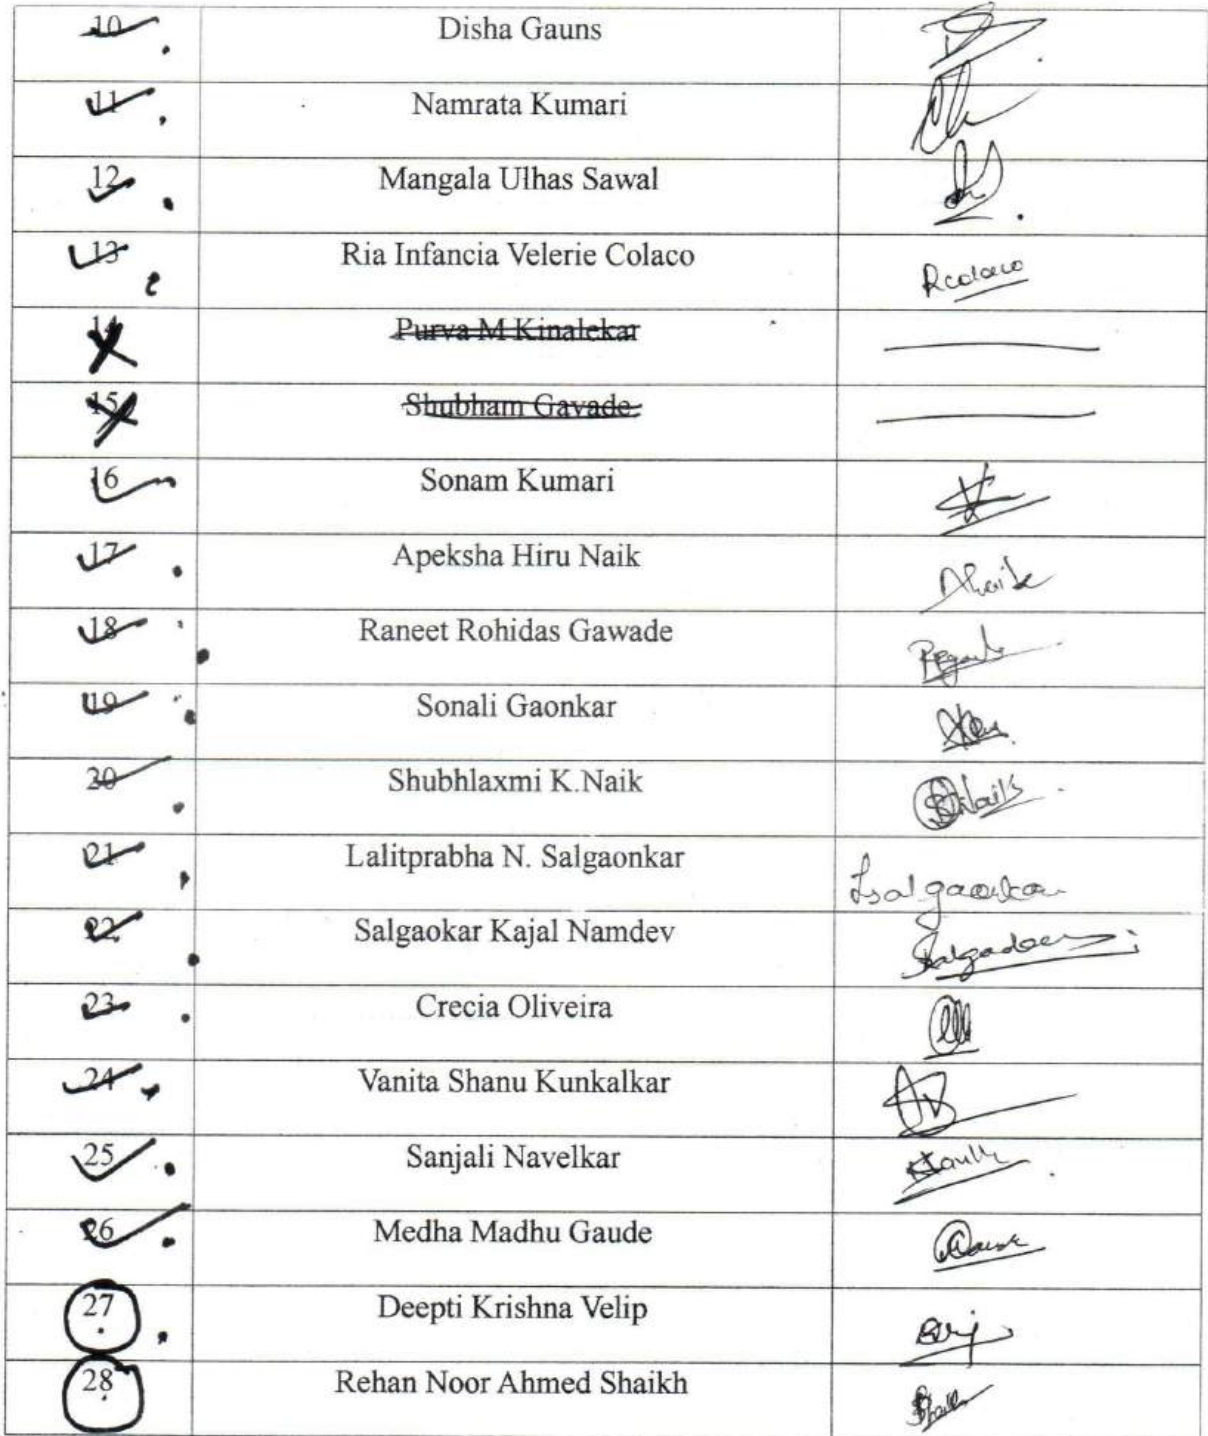 10 Disha Gauns
11 Namrata Kumari
12 Mangala Ulhas Sawal
13 Ria Infancia Velerie Colaco Rcolaco
14 Purva M Kinalekar
15 Shubham Gavade
16 Sonam Kumari
17 Apeksha Hiru Naik ANaik
18 Raneet Rohidas Gawade
19 Sonali Gaonkar
20 Shubhlaxmi K.Naik SNaik
21 Lalitprabha N. Salgaonkar Lsalgaonkar
22 Salgaokar Kajal Namdev
23 Crecia Oliveira
24 Vanita Shanu Kunkalkar
25 Sanjali Navelkar
26 Medha Madhu Gaude
27 Deepti Krishna Velip
28 Rehan Noor Ahmed Shaikh